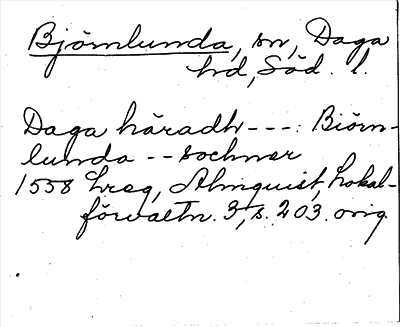 Björnlunda, sn, Daga
hd, Söd. l.
Daga häradh ---: Biörn-
lunda -- sochner
1558 hreg, Almquist, Lokal-
förvaltn. 3, s. 203. orig.